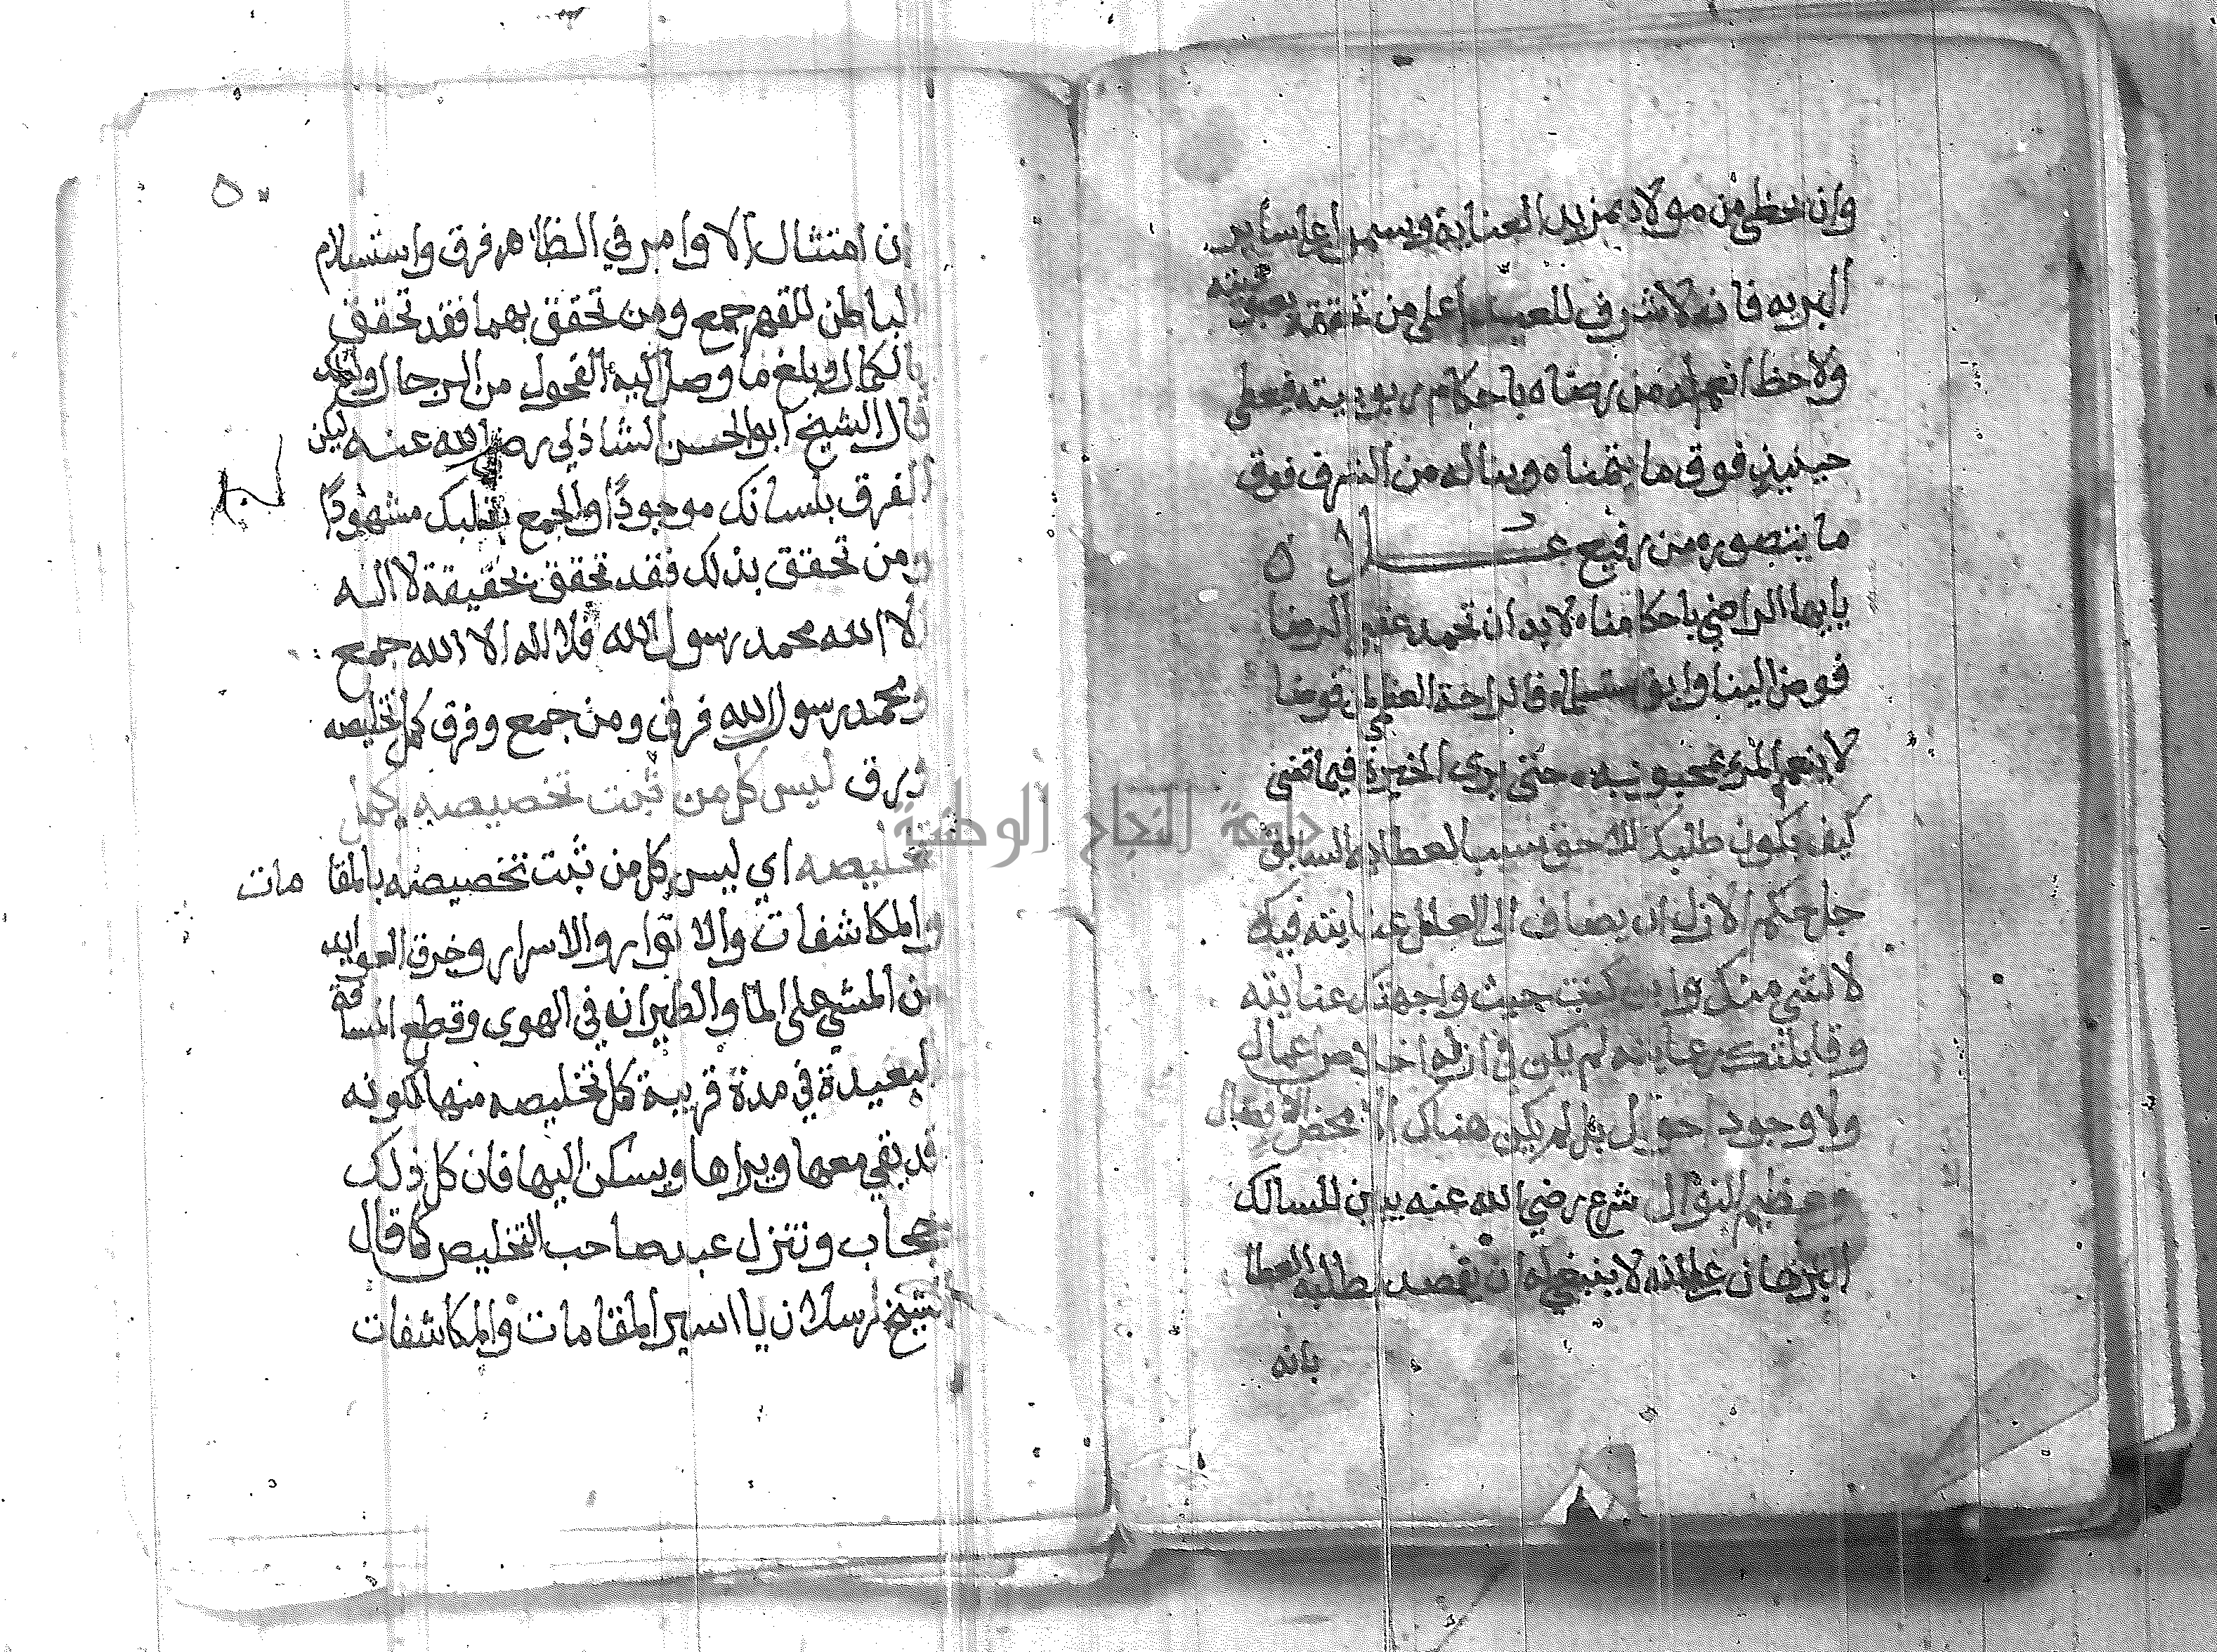 وان حظي من مولاه بمزيد العناية ويسموا على ساير
البريه فانه لا شرف للعبد اعلى من تحققه بعبوديته
ولا حظ انعم له من رضاه باحكام ربوبيته فيعطى
حينيذ فوق ما يتمناه ويناله من الشرف فوق
ما يتصوره من رفيع عــــلاه
يا يها الراضي باحكامنا لا بد ان تحمد عقبى الرضا
فوض الينا وابق مستسلما فالراحة العظمى لمن فوضا
لا ينعم المرء بمحبوبه حتى يرى الخيرة فيما قضى
كيف يكون طلبك اللاحق سبب العطايه السابق
جل حكم الازل ان يضاف الى العلل عنايته فيك
لا لشي منك واين كنت حيث واجهتك عنايته
وقابلتك رعايته لم يكن في ازله اخلاص اعمال
ولا وجود احوال بل لم يكن هناك الا محض الافضال
وعظيم النوال شرع رضي الله عنه يبين للسالك
البرهان على انه لا ينبغي له ان يقصد بطلبه العطا
بانه
٥٠
ان امتثال الاوامر في الظاهر فرق واستسلام
الباطن للقهر جمع ومن تحقق بهما فقد تحقق
بالكمال وبلغ ما وصل اليه الفحول من الرجال ولذلك
قال الشيخ ابو الحسن الشاذلي رضي الله عنه ليكن
الفرق بلسانك موجودًا والجمع بقلبك مشهودًا
ومن تحقق بذلك فقد تحقق بحقيقة لا اله
الا الله محمد رسول الله فلا اله الا الله جمع
ومحمد رسول الله فرق ومن جمع وفرق كمل تخليصه
ورق ليس كل من ثبت تخصيصه يكمل
تخليصه اي ليس كل من ثبت تخصيصه بالمقامات
والمكاشفات والانوار والاسرار وخرق العوايد
من المشي على الما والطيران في الهوى وقطع المسافة
البعيدة في مدة قريبة كمل تخليصه منها لكونه
قد بقي معها ويراها ويسكن اليها فان كل ذلك
حجاب وتنزل عند صاحب التخليص كما قال
الشيخ ارسلان يا اسير المقامات والمكاشفات
جامعة النجاح الوطنية